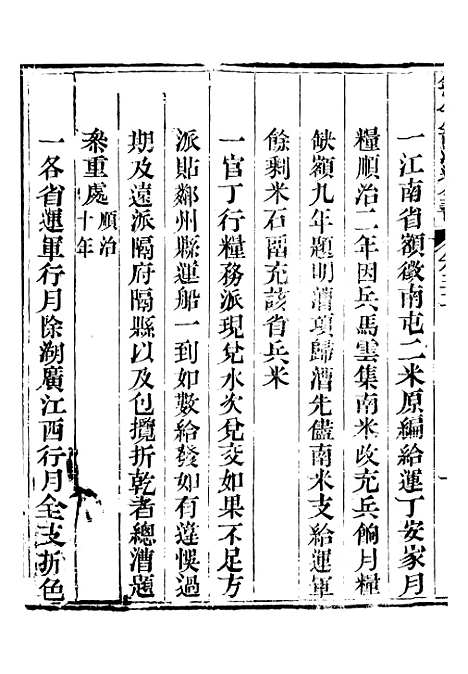 一江南省額徵南屯二米原編給運丁安家月
糧順治二年因兵馬雲集南米改充兵餉月糧
缺額九年題明漕項歸漕先儘南米支給運軍
餘剩米石畱充該省兵米
一官丁行糧務派現兌水次兌交如果不足方
派貼鄰州縣運船一到如數給發如有違悞過
期及遠派隔府隔縣以及包攬折乾者總漕題
叅重處順治十年
一各省運軍行月除湖廣江西行月全支折色